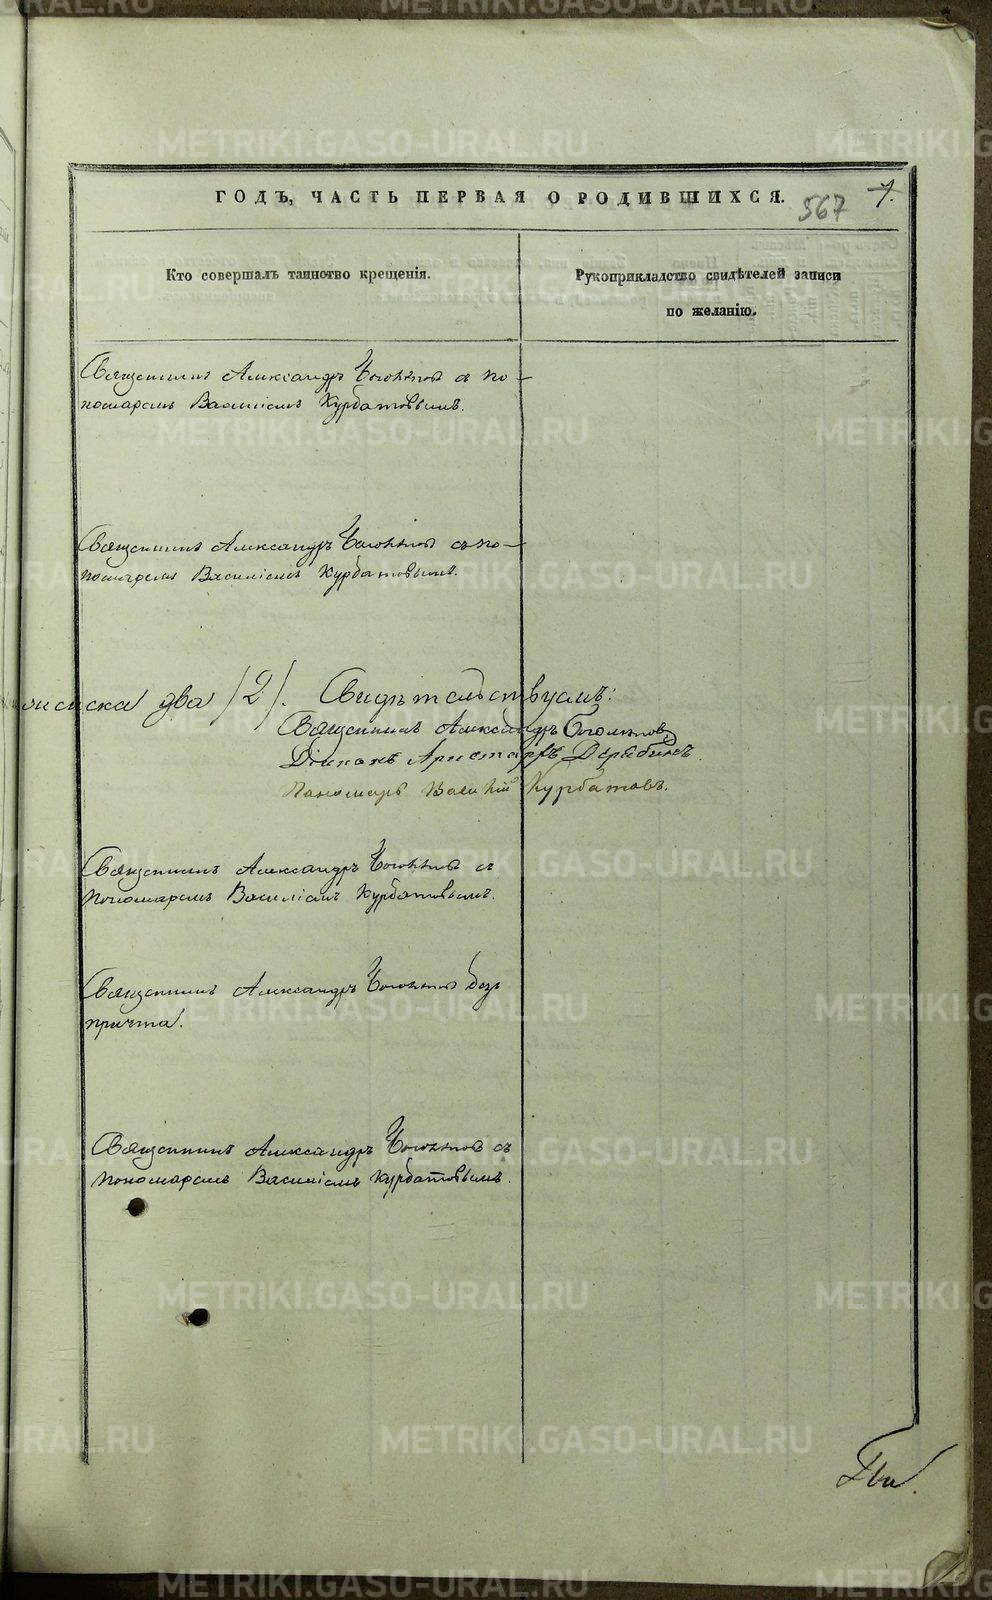 ГОДЪ, ЧАСТЬ ПЕРВАЯ О РОДИВШИХСЯ.
567 7.
Кто совершалъ таинство крещенія.
Рукоприкладство свидѣтелей записи
по желанію.
Священникъ Александръ Боголѣповъ съ по-
номаремъ Василіемъ Курбатовымъ.
Священникъ Александръ Боголѣповъ съ по-
номаремъ Василіемъ Курбатовымъ.
два /2/. Свидѣтельствуемъ:
Священникъ Александръ Боголѣповъ
Діаконъ Аристархъ Дерябинъ.
Пономарь Василій Курбатовъ.
Священникъ Александръ Боголѣповъ съ
пономаремъ Василіемъ Курбатовымъ.
Священникъ Александръ Боголѣповъ безъ
причта.
Священникъ Александръ Боголѣповъ съ
пономаремъ Василіемъ Курбатовымъ.
METRIKI.GASO-URAL.RU